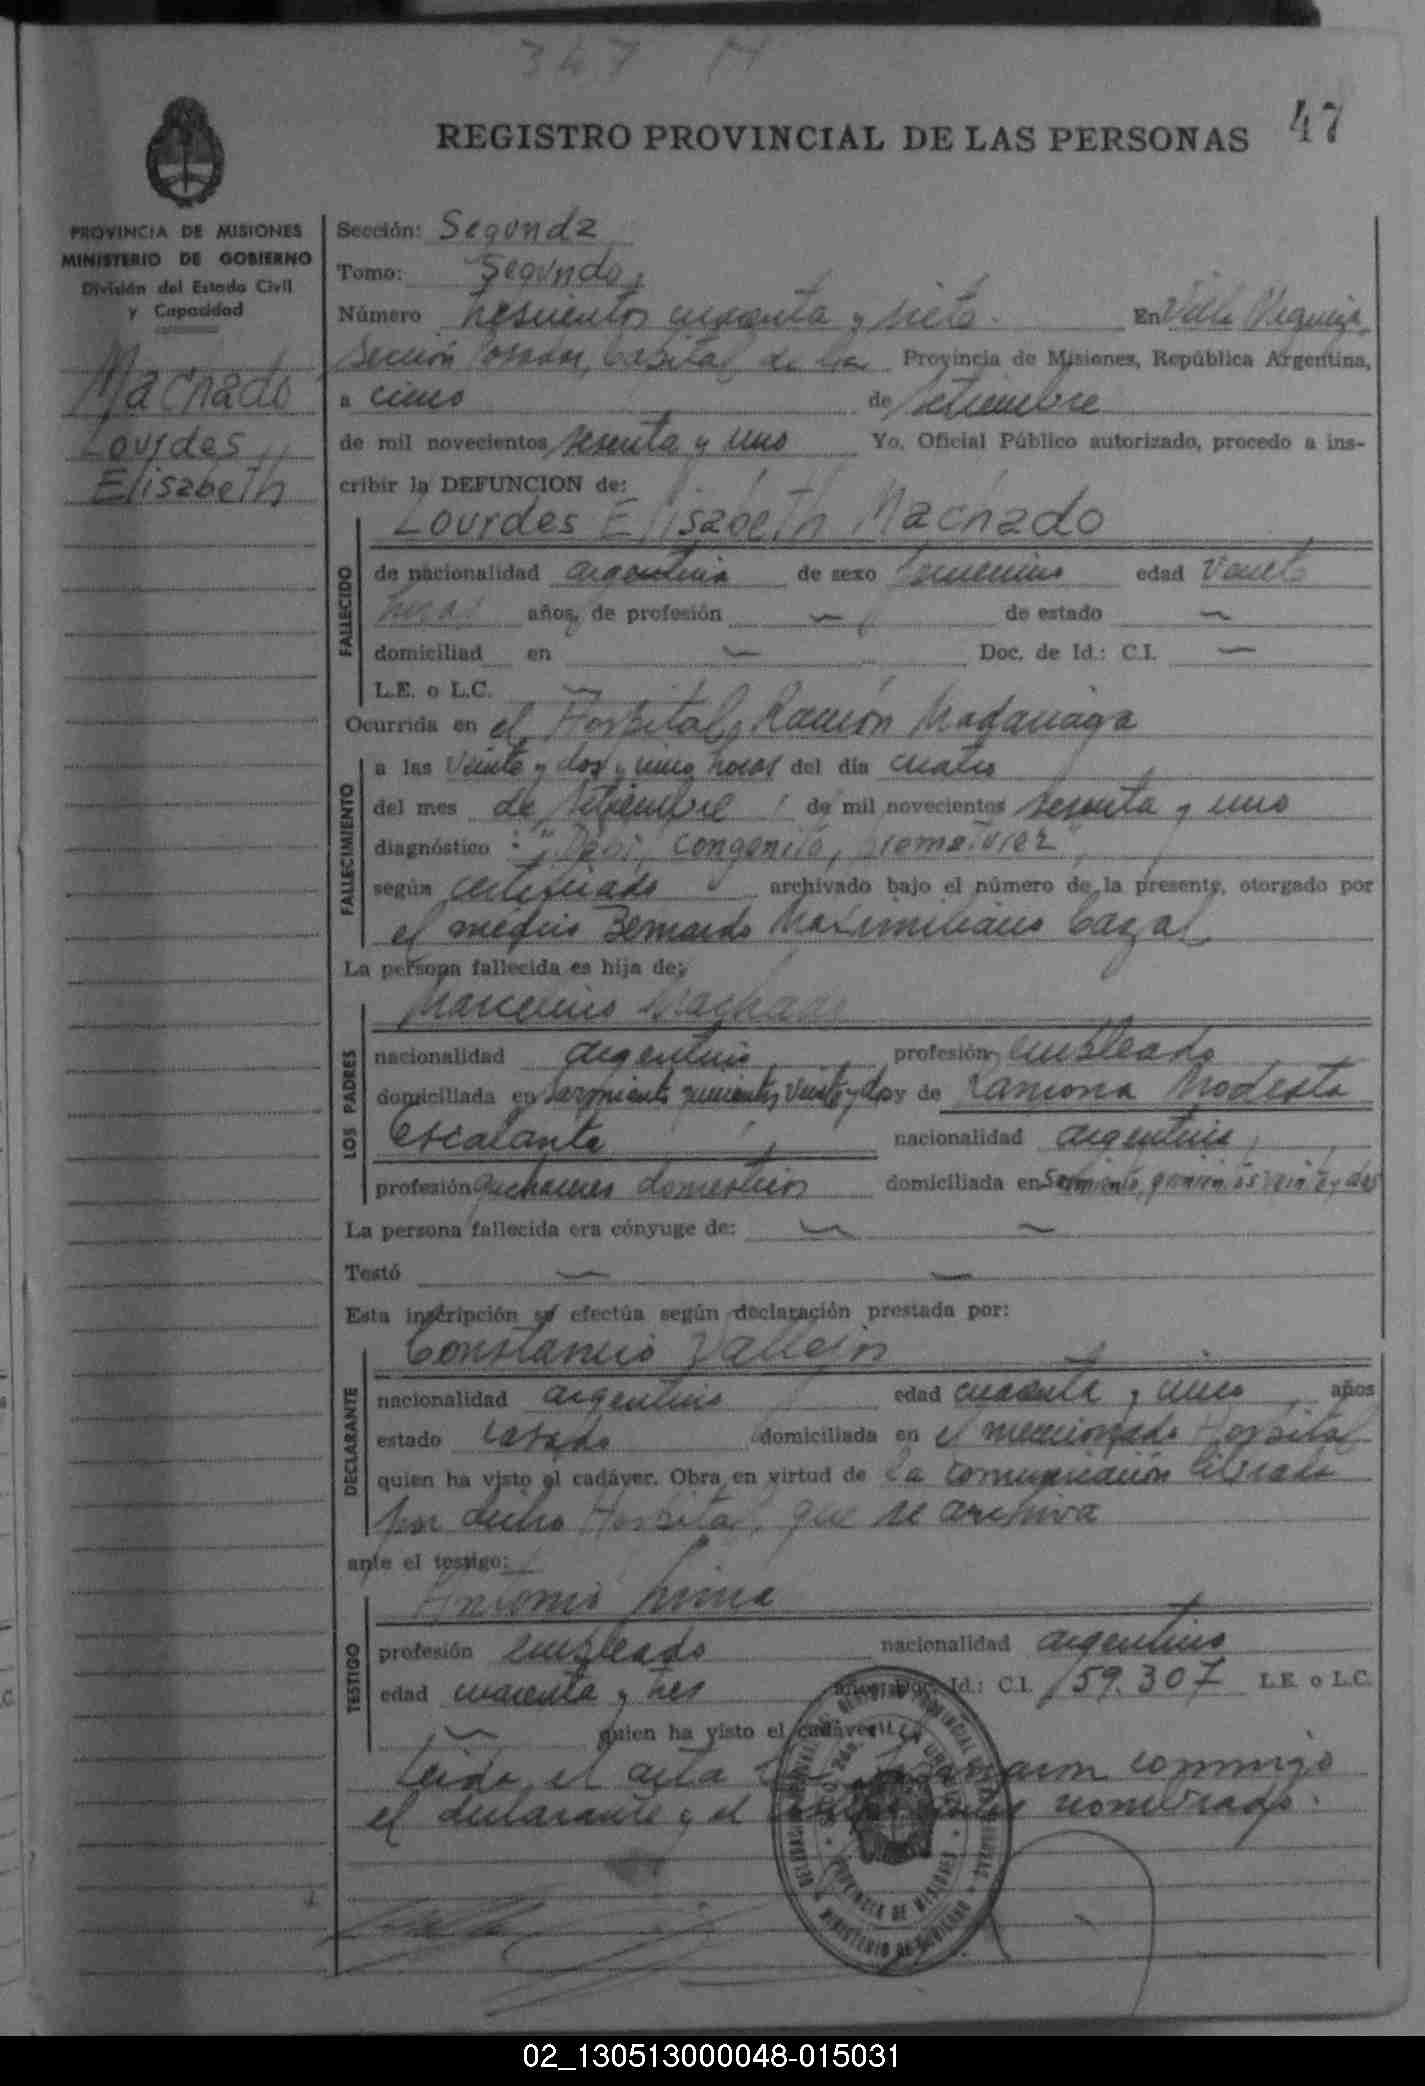 347 M
47
REGISTRO PROVINCIAL DE LAS PERSONAS
PROVINCIA DE MISIONES
MINISTERIO DE GOBIERNO
División del Estado Civil
y Capacidad
Machado
Lourdes
Elisabeth
Sección: Segunda
Tomo: Segundo
Número trescientos cuarenta y siete. En Villa Urquiza
Sección Posadas, Capital de la Provincia de Misiones, República Argentina,
a cinco de setiembre
de mil novecientos sesenta y uno Yo, Oficial Público autorizado, procedo a ins-
cribir la DEFUNCION de:
Lourdes Elisabeth Machado
FALLECIDO
de nacionalidad argentina de sexo femenino edad veinte
horas años, de profesión — de estado —
domiciliad en — Doc. de Id.: C.I. —
L.E. o L.C. —
Ocurrida en el Hospital Ramón Madariaga
FALLECIMIENTO
a las veinte y dos y cinco horas del día cuatro
del mes de setiembre de mil novecientos sesenta y uno
diagnóstico : "Deb. congenita, prematurez"
según certificado archivado bajo el número de la presente, otorgado por
el médico Bernardo Maximiliano Cazal
La persona fallecida es hija de:
Marcelino Machado
LOS PADRES
nacionalidad argentino profesión empleado
domiciliada en Sarmiento quinientos veinte y dos y de Ramona Modesta
Escalante nacionalidad argentina
profesión quehaceres domésticos domiciliada en Sarmiento, quinientos veinte y dos
La persona fallecida era cónyuge de: — —
Testó — —
Esta inscripción se efectúa según declaración prestada por:
Constancio Vallejos
DECLARANTE
nacionalidad argentino edad cuarenta y cinco años
estado casado domiciliada en el mencionado Hospital
quien ha visto el cadáver. Obra en virtud de la comunicación librada
por dicho Hospital, que se archiva
ante el testigo:
Antonio
TESTIGO
profesión empleado nacionalidad argentino
edad cuarenta y tres años, Doc. Id.: C.I. 159.307 L.E. o L.C.
— quien ha visto el cadáver
Leida el acta la firmaron conmigo
el declarante y el testigo nombrado.
REGISTRO PROVINCIAL DE LAS PERSONAS
PROVINCIA DE MISIONES
MINISTERIO DE GOBIERNO
02_130513000048-015031